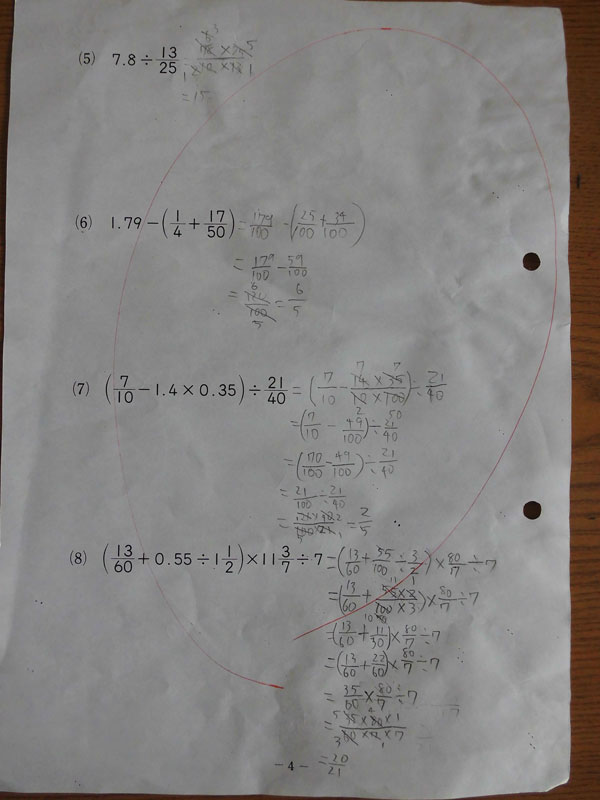 (5) 7.8÷13/25
=15
(6) 1.79−(1/4+17/50)=179/100−(25/100+34/100)
=179/100−59/100
=120/100=6/5
(7) (7/10−1.4×0.35)÷21/40=(7/10−14×35/10×100)÷21/40
=(7/10−49/100)÷21/40
=(70/100−49/100)÷21/40
=21/100÷21/40
=21×40/100×21=2/5
(8) (13/60+0.55÷1 1/2)×11 3/7÷7=(13/60+55/100÷3/2)×80/7÷7
=(13/60+55×2/100×3)×80/7÷7
=(13/60+11/30)×80/7÷7
=(13/60+22/60)×80/7÷7
=35/60×80/7÷7
=35×80×1/60×7×7
=20/21
−4−